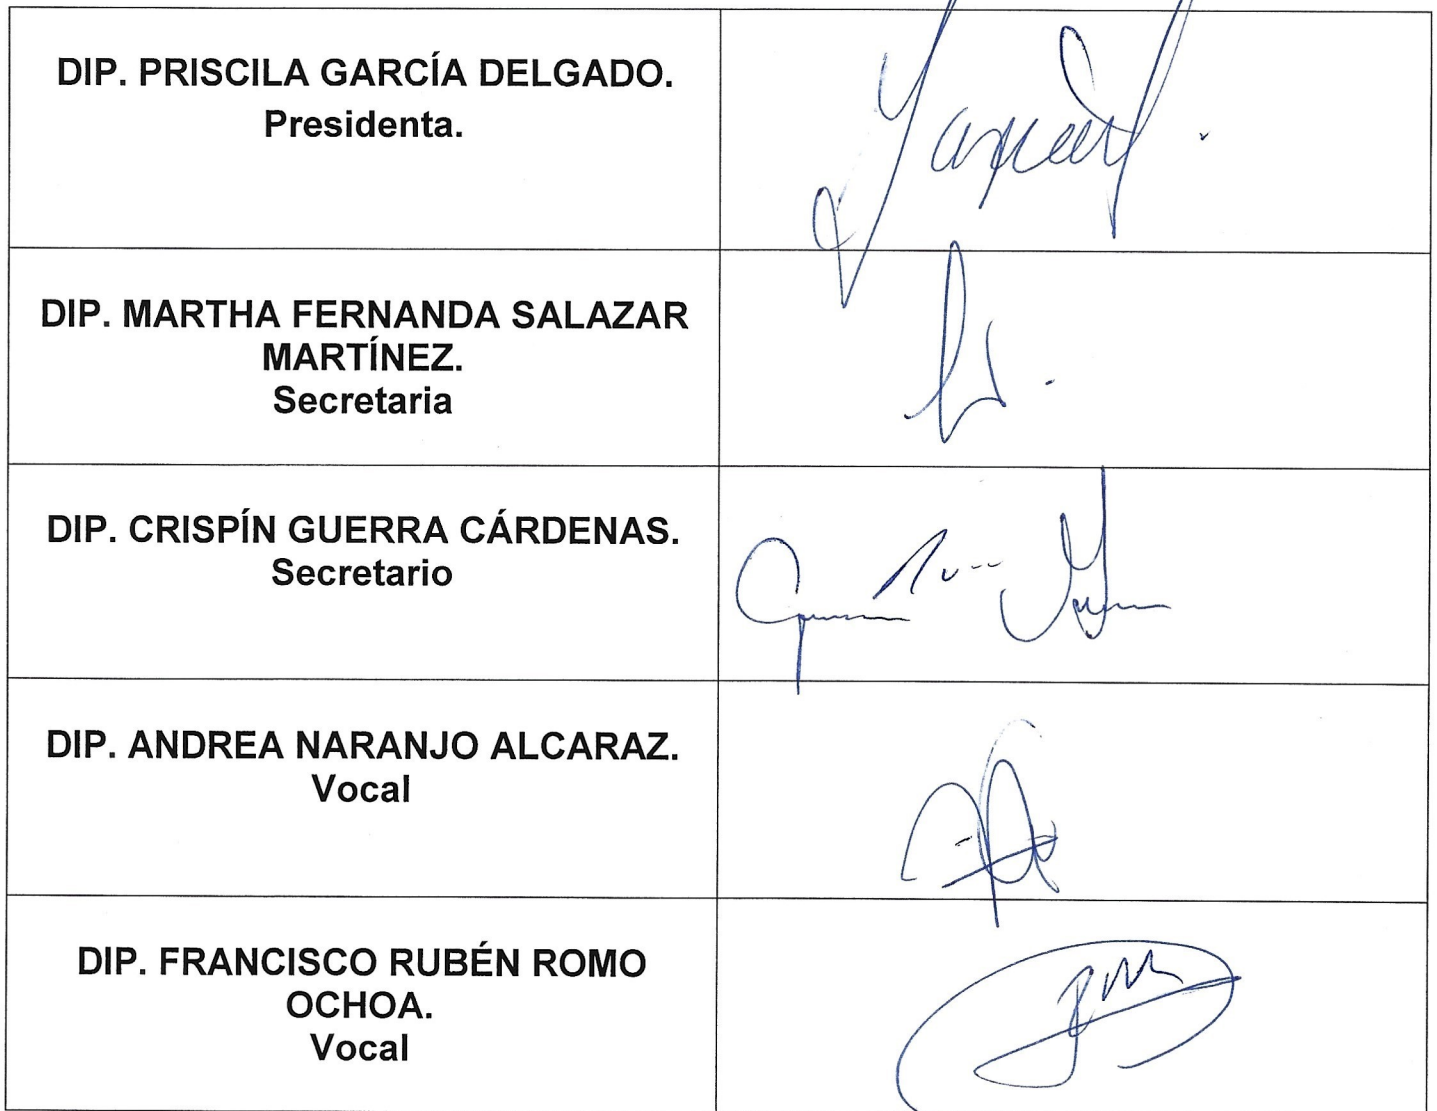 DIP. PRISCILA GARCÍA DELGADO.
Presidenta.
DIP. MARTHA FERNANDA SALAZAR
MARTÍNEZ.
Secretaria
DIP. CRISPÍN GUERRA CÁRDENAS.
Secretario
DIP. ANDREA NARANJO ALCARAZ.
Vocal
DIP. FRANCISCO RUBÉN ROMO
OCHOA.
Vocal